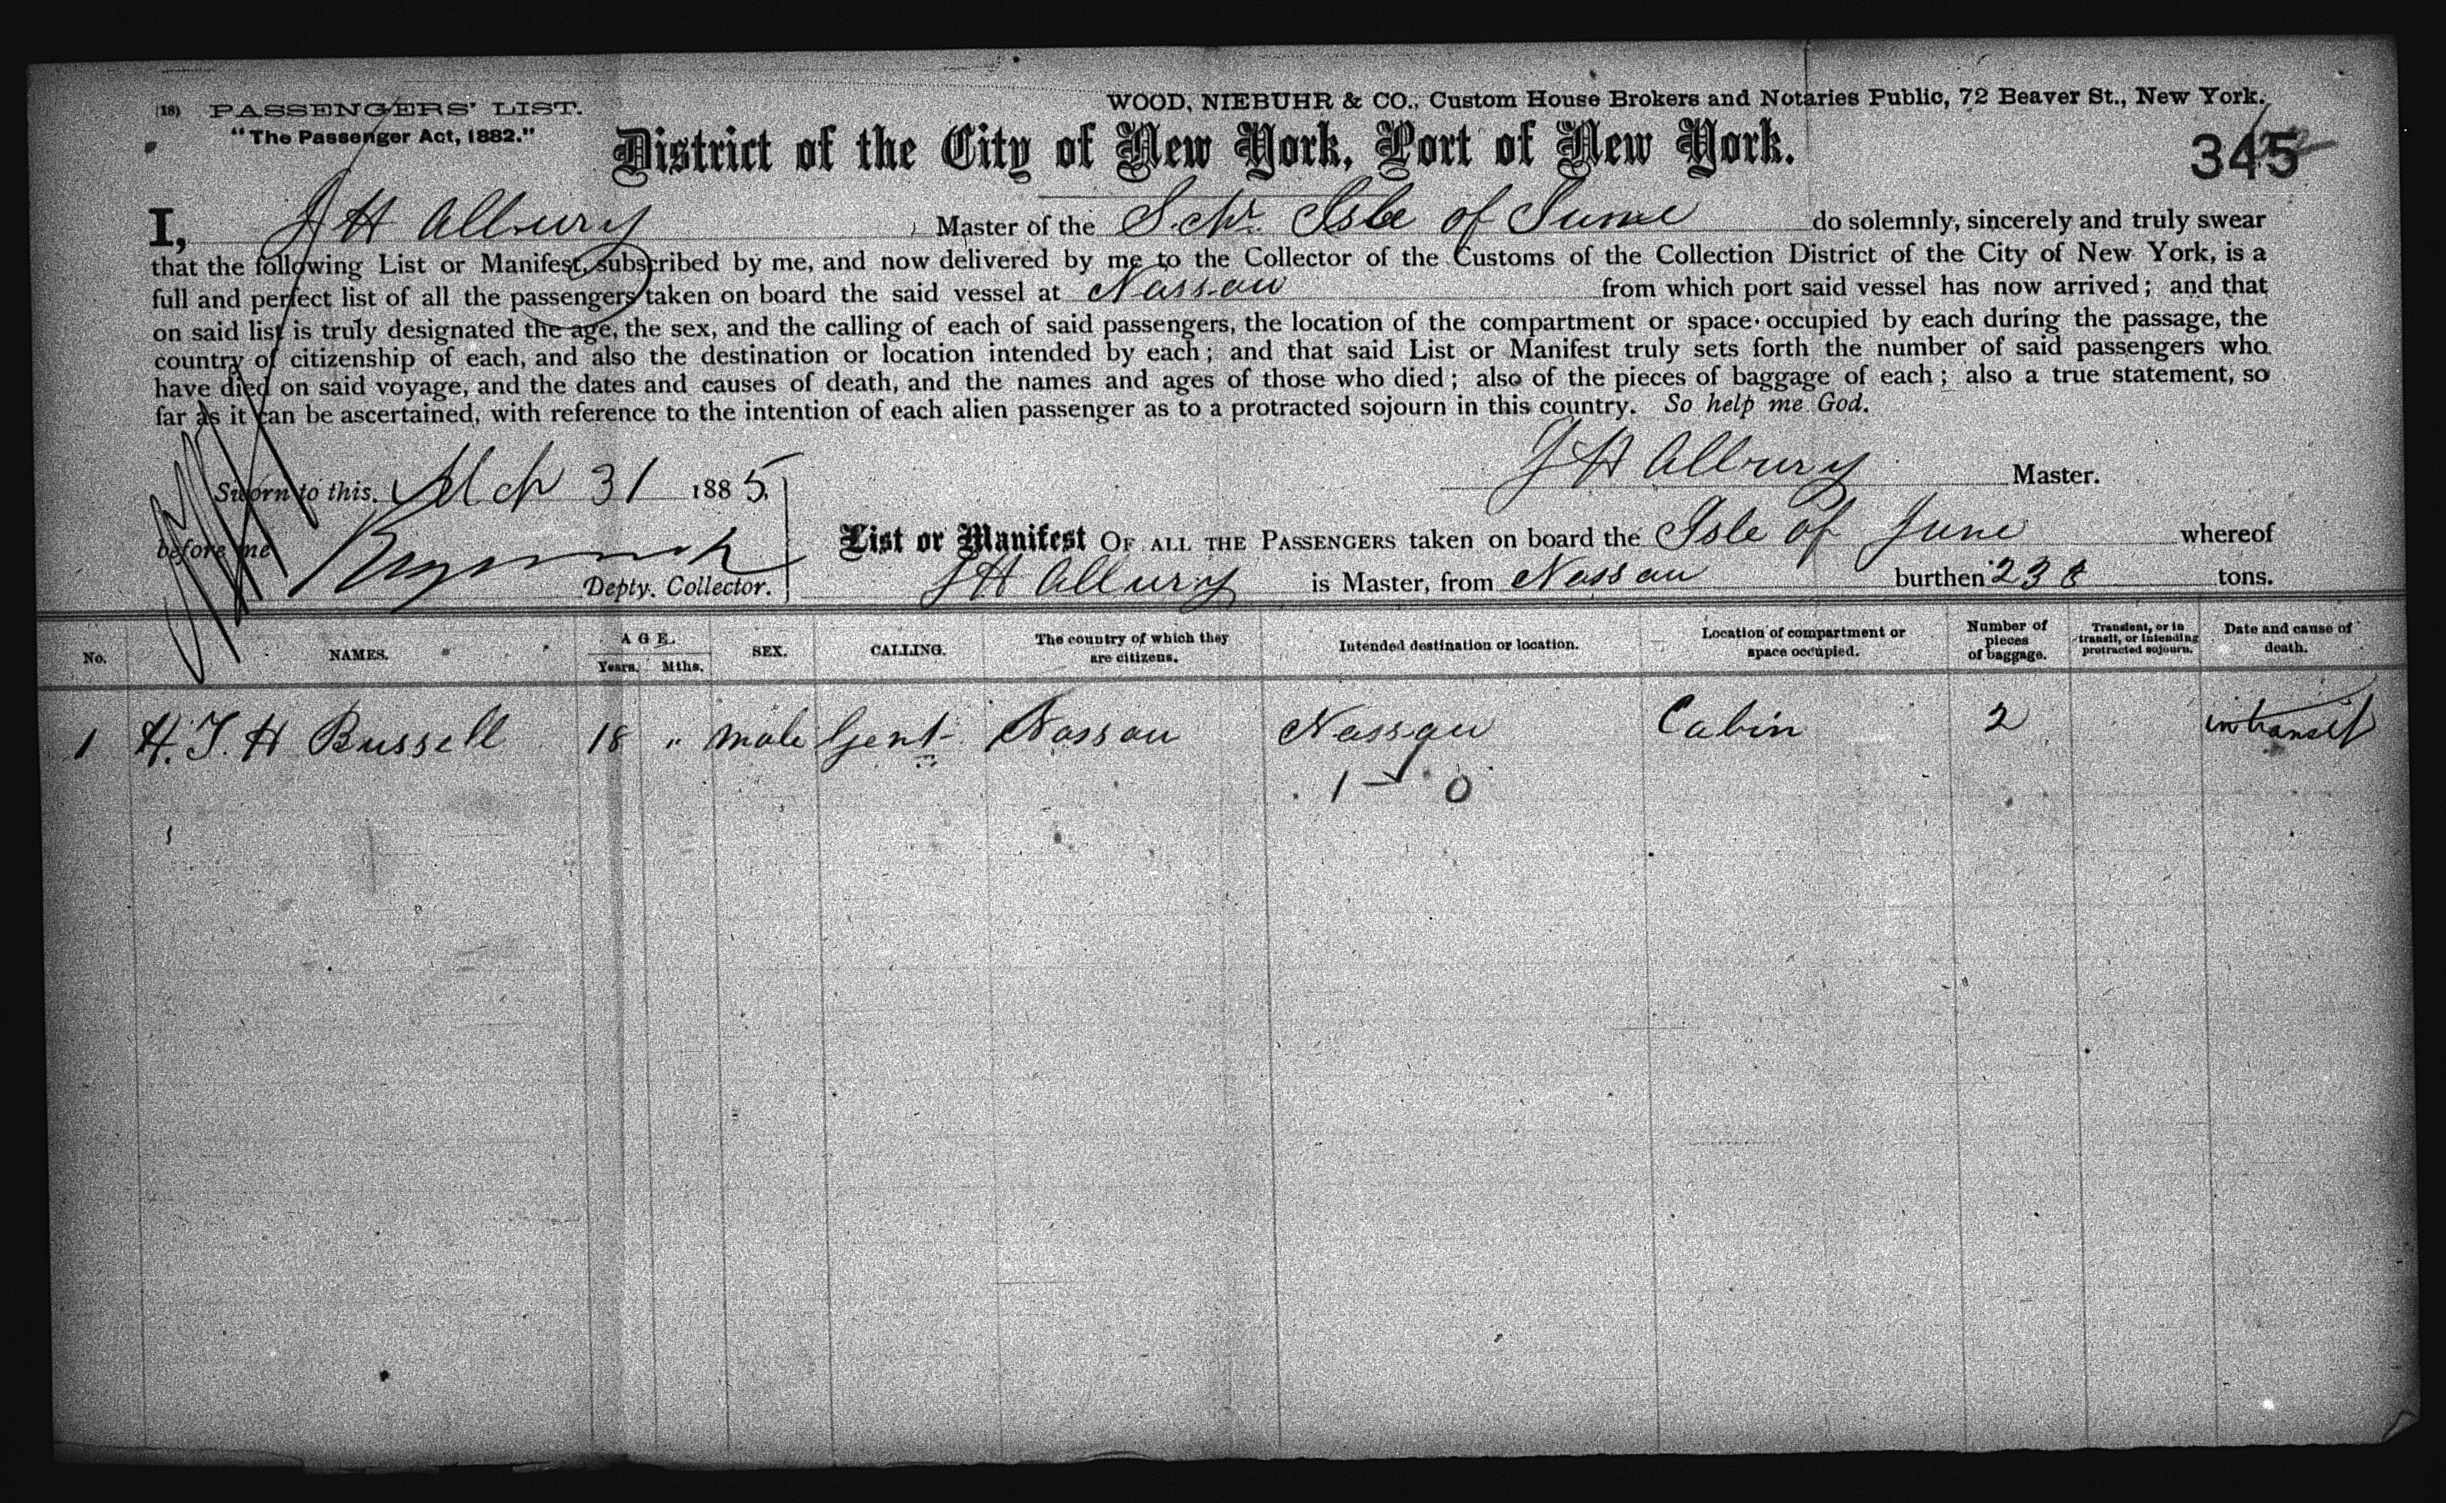 (18) PASSENGERS' LIST.
"The Passenger Act, 1882."
WOOD, NIEBUHR & CO., Custom House Brokers and Notaries Public, 72 Beaver St., New York.
District of the City of New York, Port of New York.
345
I, J H Albury Master of the Schr. Isle of June do solemnly, sincerely and truly swear
that the following List or Manifest, subscribed by me, and now delivered by me to the Collector of the Customs of the Collection District of the City of New York, is a
full and perfect list of all the passengers taken on board the said vessel at Nassau from which port said vessel has now arrived; and that
on said list is truly designated the age, the sex, and the calling of each of said passengers, the location of the compartment or space occupied by each during the passage, the
country of citizenship of each, and also the destination or location intended by each; and that said List or Manifest truly sets forth the number of said passengers who
have died on said voyage, and the dates and causes of death, and the names and ages of those who died; also of the pieces of baggage of each; also a true statement, so
far as it can be ascertained, with reference to the intention of each alien passenger as to a protracted sojourn in this country. So help me God.
J H Albury Master.
Sworn to this, Mch 31 1885.
before me
Depty. Collector.
List or Manifest OF ALL THE PASSENGERS taken on board the Isle of June whereof
J H Albury is Master, from Nassau burthen 238 tons.
No. NAMES. AGE. Years. Mths. SEX. CALLING. The country of which they are citizens. Intended destination or location. Location of compartment or space occupied. Number of pieces of baggage. Transient, or in transit, or intending protracted sojourn. Date and cause of death.
1 H. T. H Bussell 18 " male Gent Nassau Nassau Cabin 2 in transit
1 - 0